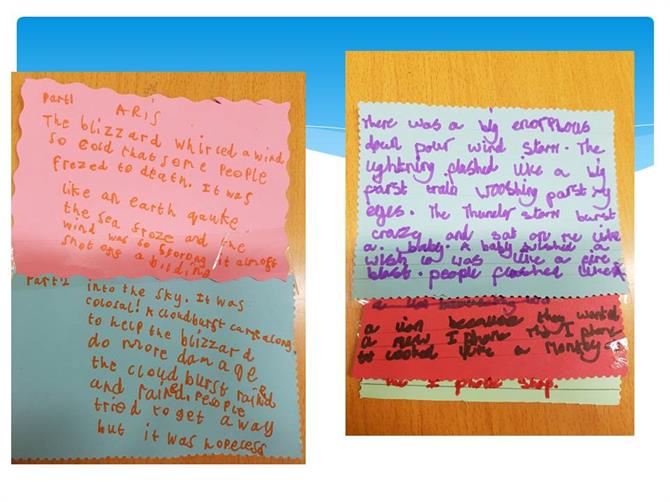 Part1 ARIS
The blizzard whirled a wind
so cold that some people
frezed to death. It was
like an earth qauke
the sea froze and the
wind was so strong it almost
shot off a building
Part2 into the sky. It was
colosal! A cloudburst came along
to help the blizzard
do more damage
the cloud burst rained
and rained. People
tried to get away
but it was hopeless
There was a big enormous
down pour wind storm. The
lightning flashed like a big
parst train wooshing parst my
eyes. The Thunder storm burst
crazy and sat on me like
a baby. A baby wished a
wish it was like a fire
blast. people flashed
a lion because they wanted
a new I phone The I phone
looked like a monkey